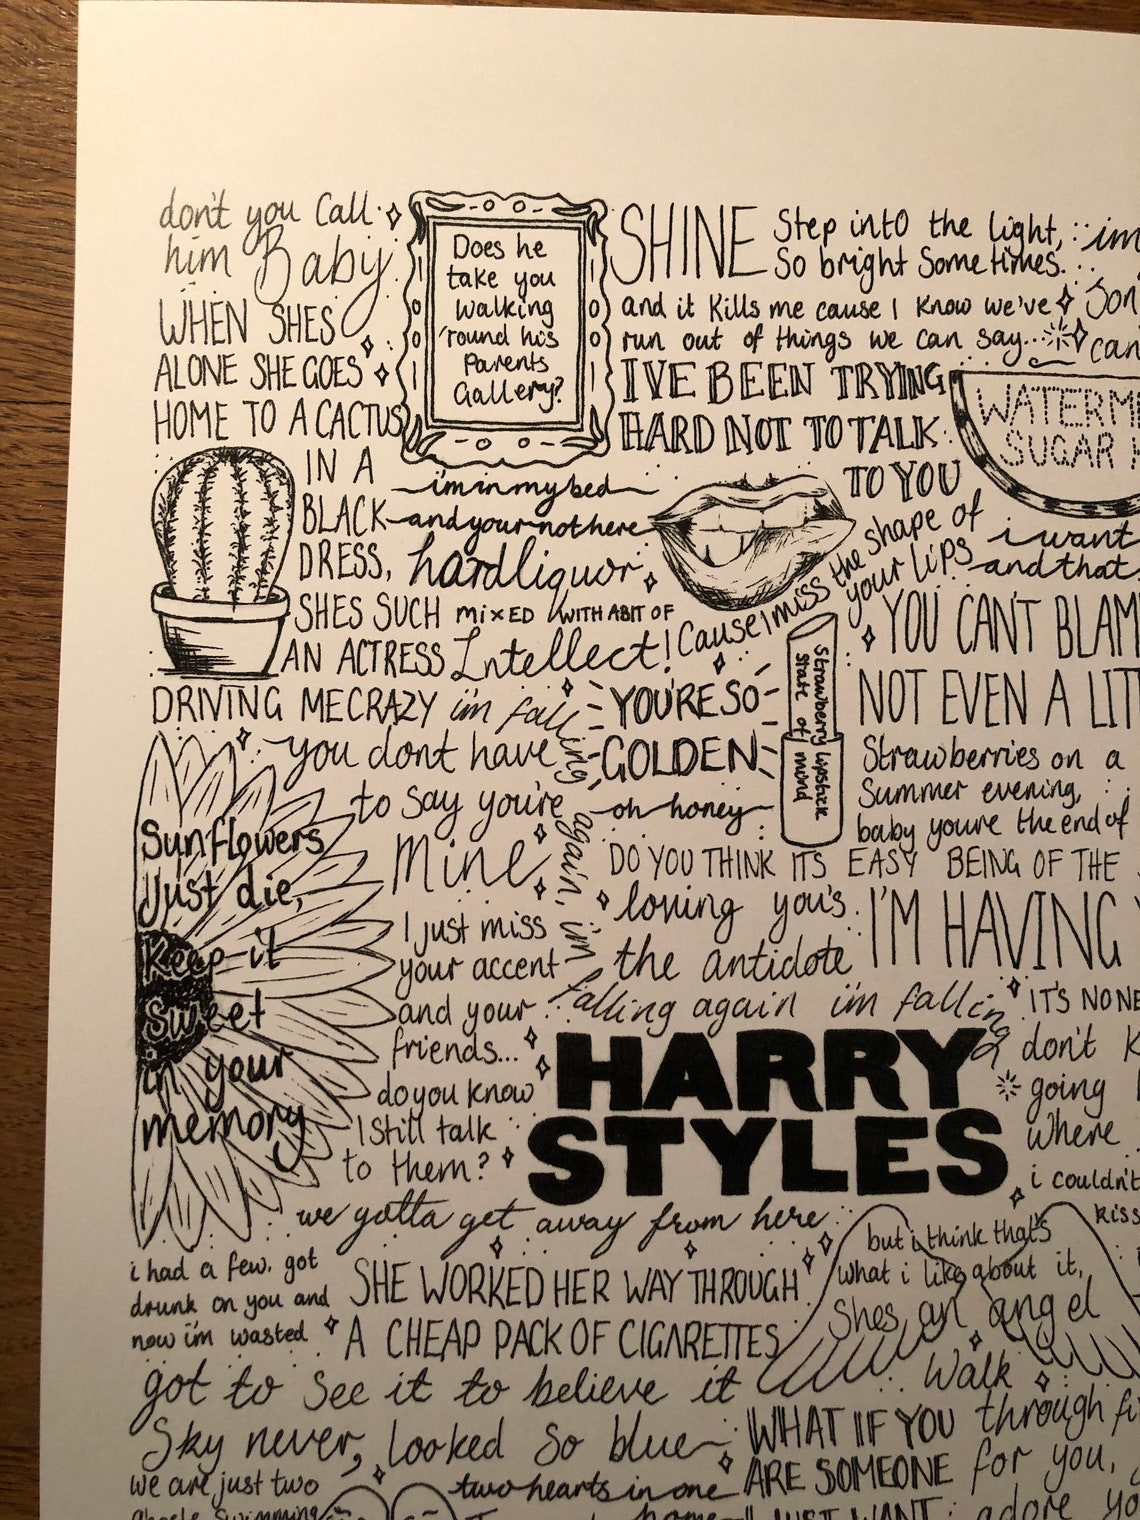 don't you Call
him Baby
WHEN SHES
ALONE SHE GOES
HOME TO A CACTUS
IN A
BLACK
DRESS,
SHES SUCH
AN ACTRESS
DRIVING ME CRAZY
Does he
take you
Walking
'round his
Parents
Gallery?
SHINE
Step into the light,
So bright Sometimes.
im
and it kills me cause I know we've
run out of things we can say...
Son
can
I'VE BEEN TRYING
HARD NOT TO TALK
TO YOU
WATERM
SUGAR H
i'm in my bed
and your not here
hard liquor
mixED WITH A BIT OF
Intellect!
Cause I miss the shape of
your lips
i want
and that
YOU CAN'T BLAM
NOT EVEN A LIT
Strawberry lipstick
state of mind
YOU'RE SO
GOLDEN
oh honey
i'm falling again, i'm falling again i'm falling
you dont have
to say you're
Mine
Strawberries on a
Summer evening,
baby youre the end of
Sunflowers
Just die,
Keep it
Sweet
in your
memory
DO YOU THINK ITS EASY BEING OF THE
loving you's
the antidote
I'M HAVING Y
I just miss
your accent
and your
friends...
do you know
I Still talk
to them?
HARRY
STYLES
IT'S NONE
don't K
going
Where
i couldn't
kiss
we gotta get away from here
but i think that's
what i like about it,
Shes an angel
i had a few, got
drunk on you and
now i'm wasted
SHE WORKED HER WAY THROUGH
A CHEAP PACK OF CIGARETTES
got to See it to believe it
Sky never, looked So blue
Walk
through fi
for you,
adore yo
WHAT IF YOU
ARE SOMEONE
I JUST WANT
we are just two
two hearts in one
home